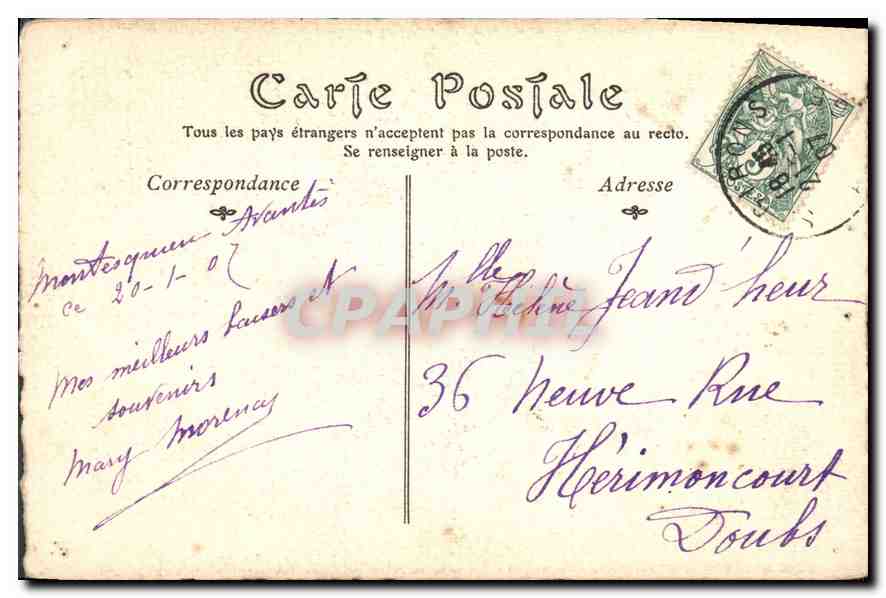 Carte Postale
Tous les pays étrangers n'acceptent pas la correspondance au recto.
Se renseigner à la poste.
Correspondance
Adresse
Montesquieu Avantès
ce 20-1-07
Mes meilleurs baisers et
souvenirs
Mary Morency
Mlle Hélène Jeand'heur
36 Neuve Rue
Hérimoncourt
Doubs
CPAPHIL